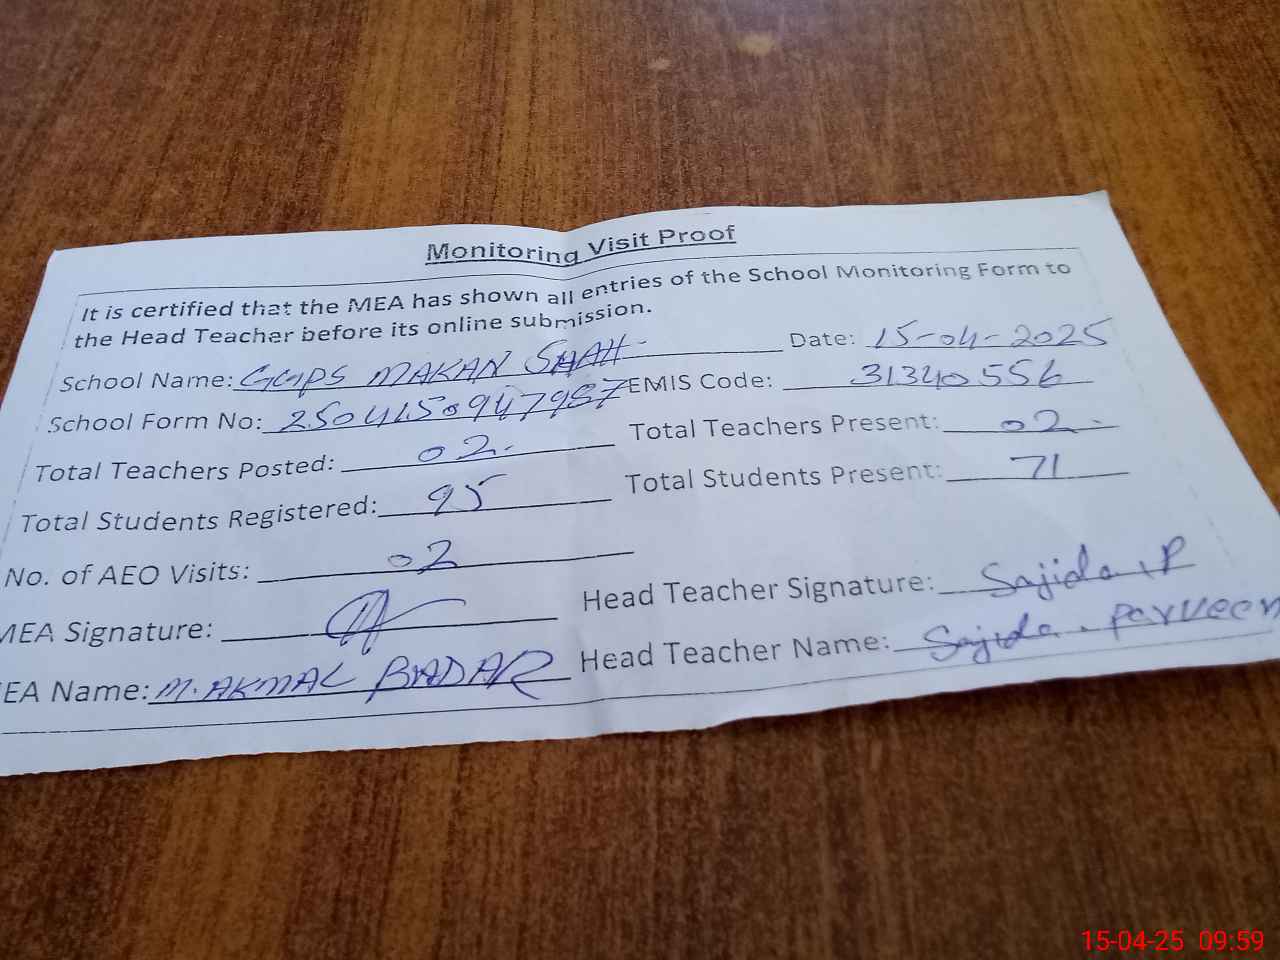 Monitoring Visit Proof
It is certified that the MEA has shown all entries of the School Monitoring Form to
the Head Teacher before its online submission.
School Name: GGPS MAKAN SHAH Date: 15-04-2025
School Form No: 2504150947987 EMIS Code: 31340556
Total Teachers Posted: 02. Total Teachers Present: 02.
Total Students Registered: 95 Total Students Present: 71
No. of AEO Visits: 02
MEA Signature: Head Teacher Signature: Sajida.P
EA Name: M. AKMAL BADAR Head Teacher Name: Sajida. Parveen
15-04-25 09:59